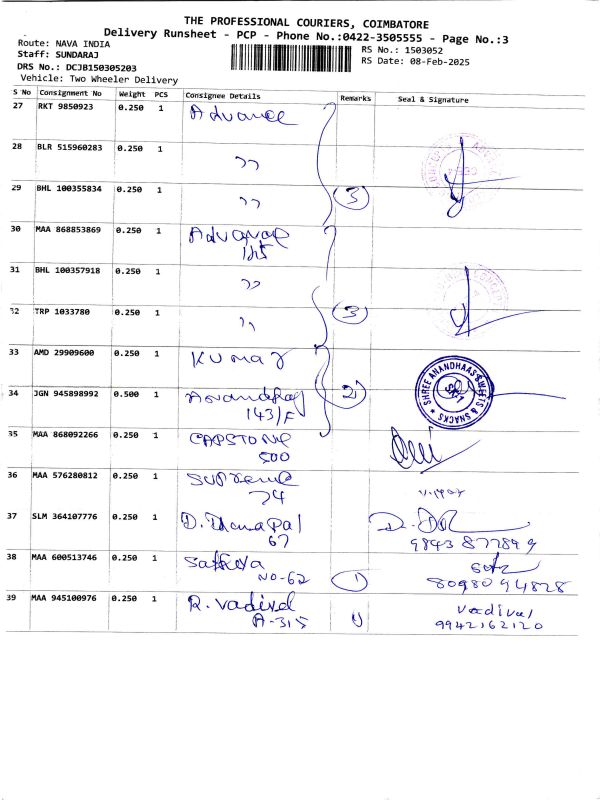 THE PROFESSIONAL COURIERS, COIMBATORE
Delivery Runsheet - PCP - Phone No.:0422-3505555 - Page No.:3
Route: NAVA INDIA
RS No.: 1503052
Staff: SUNDARAJ
RS Date: 08-Feb-2025
DRS No.: DCJB150305203
Vehicle: Two Wheeler Delivery
S No Consignment No Weight PCS Consignee Details Remarks Seal & Signature
27 RKT 9850923 0.250 1 Advance
28 BLR 515960283 0.250 1 ,,
29 BHL 100355834 0.250 1 ,, 3
30 MAA 868853869 0.250 1 Advance
125
31 BHL 100357918 0.250 1 ,,
32 TRP 1033780 0.250 1 ,, 3
33 AMD 29909600 0.250 1 Kumar
SHREE ANANDHAAS SWEETS & SNACKS
34 JGN 945898992 0.500 1 2
143/F
35 MAA 868092266 0.250 1 CAPSTONE
500
36 MAA 576280812 0.250 1 Supreme
74
37 SLM 364107776 0.250 1 D. Thanapal
67 9843877899
38 MAA 600513746 0.250 1 1
NO-62 8098094828
39 MAA 945100976 0.250 1 R. Vadivel Vadival
A-315 9942162120